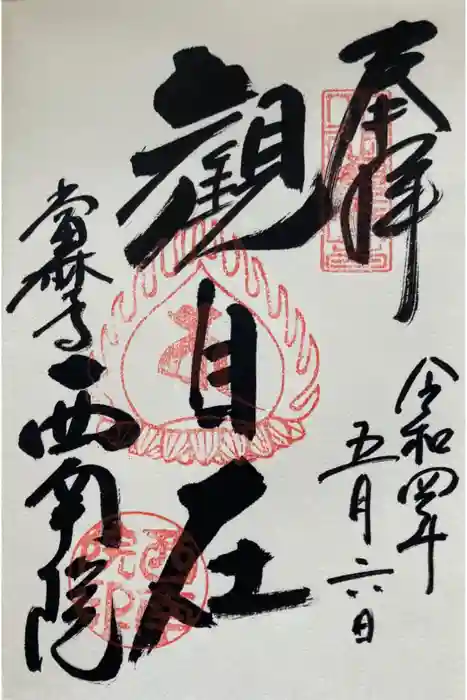 奉拝
令和四年
五月六日
觀自在
當麻寺 西南院
西南
院印